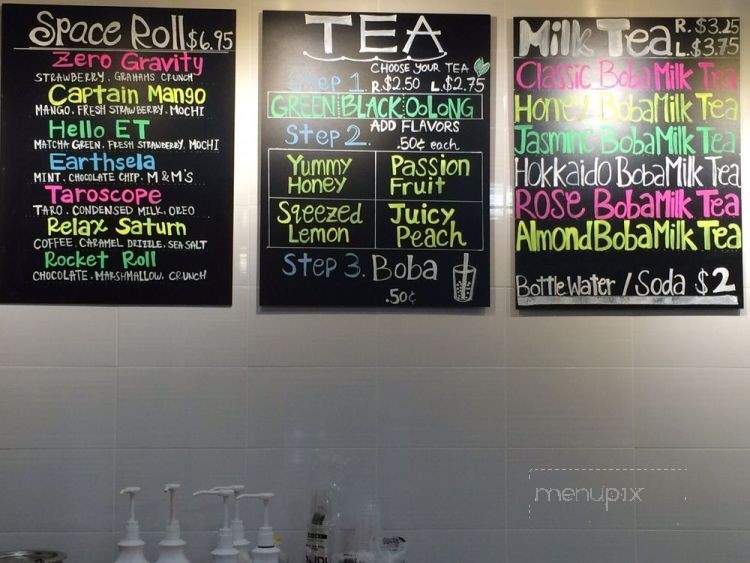 Space Roll $6.95
Zero Gravity
STRAWBERRY. GRAHAMS CRUNCH
Captain Mango
MANGO. FRESH STRAWBERRY. MOCHI
Hello ET
MATCHA GREEN. FRESH STRAWBERRY. MOCHI
Earthsela
MINT. CHOCOLATE CHIP. M & M's
Taroscope
TARO. CONDENSED MILK. OREO
Relax Saturn
COFFEE. CARAMEL DRIZZLE. SEA SALT
Rocket Roll
CHOCOLATE. MARSHMALLOW. CRUNCH
TEA
CHOOSE YOUR TEA
Step 1. R.$2.50 L.$2.75
GREEN BLACK OOLONG
ADD FLAVORS
Step 2. .50¢ each
Yummy Honey
Passion Fruit
Sqeezed Lemon
Juicy Peach
Step 3. Boba
.50¢
Milk Tea R. $3.25
L. $3.75
Classic Boba Milk Tea
Honey Boba Milk Tea
Jasmine Boba Milk Tea
Hokkaido Boba Milk Tea
ROSE Boba Milk Tea
Almond Boba Milk Tea
Bottle Water / Soda $2
menupix